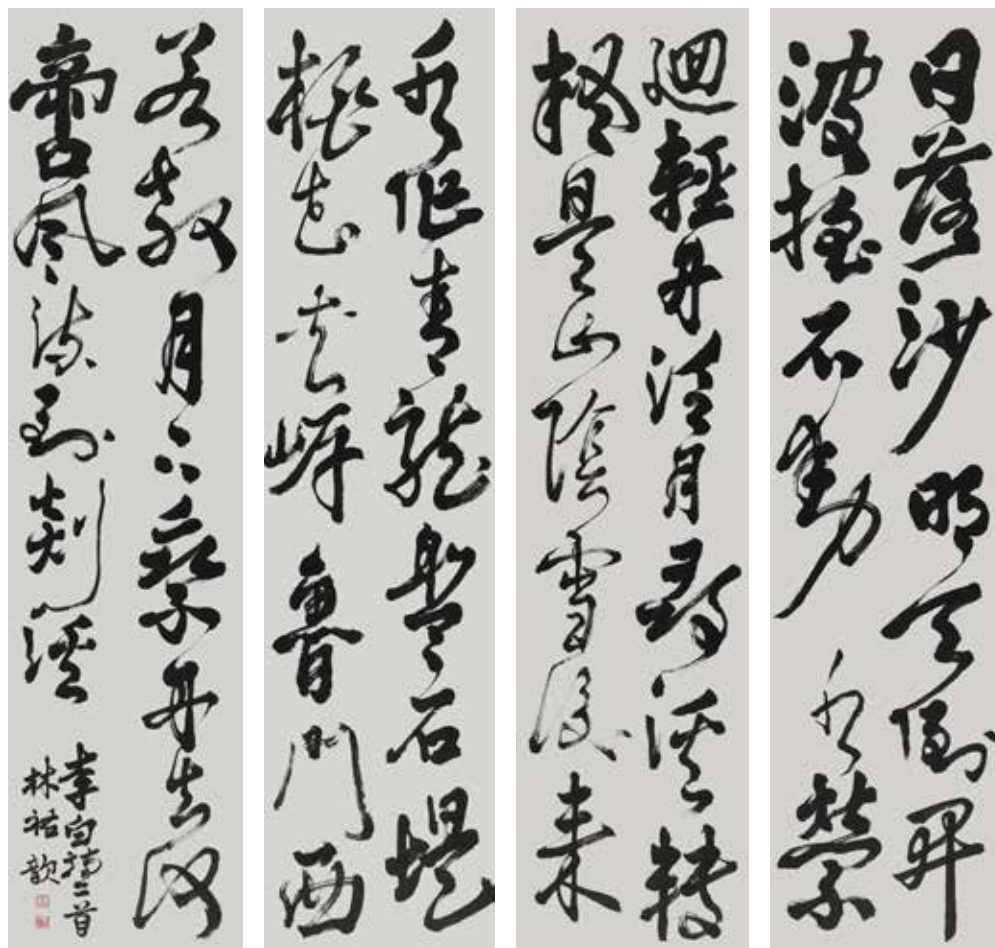 日落沙明天倒開
波搖石動水縈
迴輕舟泛月尋溪轉
疑是山陰雪後來
水作青龍盤石堤
桃花夾岸魯門西
若教月下乘舟去何
啻風流到剡溪
李白詩二首
林歆